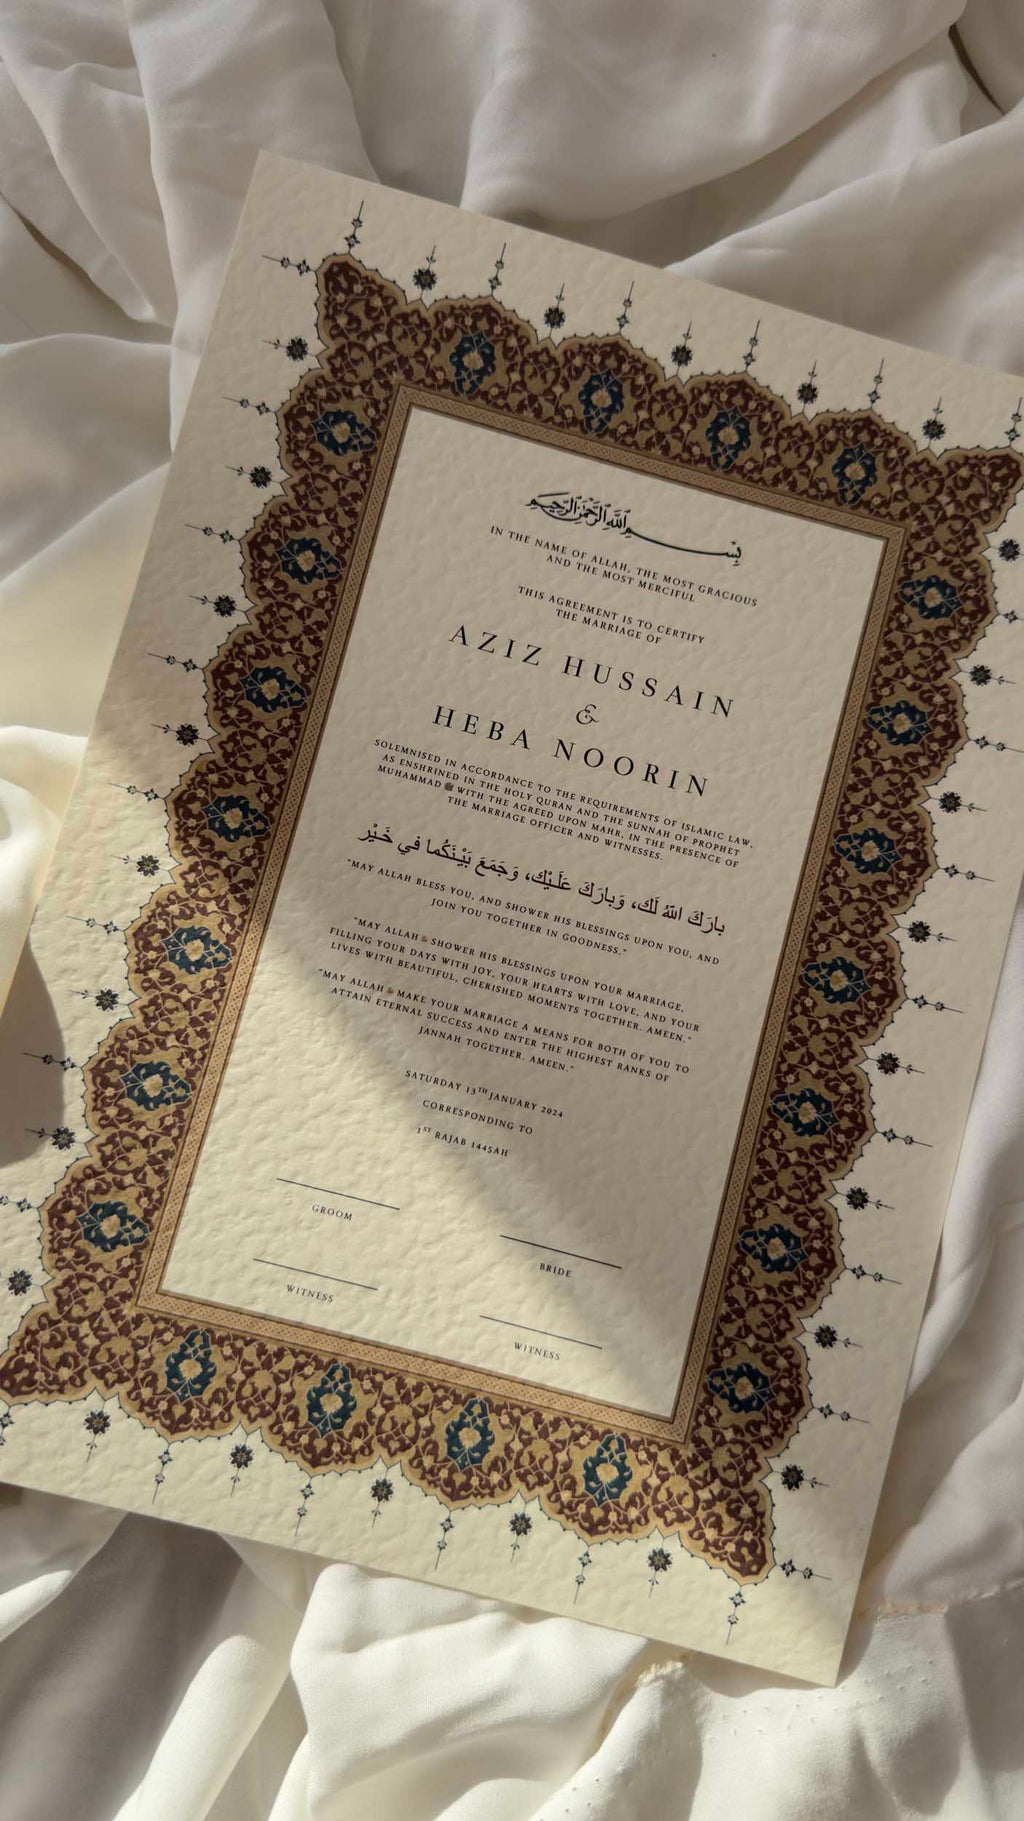 بسم الله الرحمن الرحيم
IN THE NAME OF ALLAH, THE MOST GRACIOUS
AND THE MOST MERCIFUL
THIS AGREEMENT IS TO CERTIFY
THE MARRIAGE OF
AZIZ HUSSAIN
&
HEBA NOORIN
SOLEMNISED IN ACCORDANCE TO THE REQUIREMENTS OF ISLAMIC LAW,
AS ENSHRINED IN THE HOLY QURAN AND THE SUNNAH OF PROPHET
MUHAMMAD ﷺ WITH THE AGREED UPON MAHR, IN THE PRESENCE OF
THE MARRIAGE OFFICER AND WITNESSES.
بارَكَ اللهُ لَك، وَبارَكَ عَلَـيْك، وَجَمَعَ بَيْنَكُما في خَـيْر
"MAY ALLAH BLESS YOU, AND SHOWER HIS BLESSINGS UPON YOU, AND
JOIN YOU TOGETHER IN GOODNESS."
"MAY ALLAH SHOWER HIS BLESSINGS UPON YOUR MARRIAGE,
FILLING YOUR DAYS WITH JOY, YOUR HEARTS WITH LOVE, AND YOUR
LIVES WITH BEAUTIFUL, CHERISHED MOMENTS TOGETHER. AMEEN."
"MAY ALLAH MAKE YOUR MARRIAGE A MEANS FOR BOTH OF YOU TO
ATTAIN ETERNAL SUCCESS AND ENTER THE HIGHEST RANKS OF
JANNAH TOGETHER. AMEEN."
SATURDAY 13TH JANUARY 2024
CORRESPONDING TO
1ST RAJAB 1445AH
GROOM
BRIDE
WITNESS
WITNESS